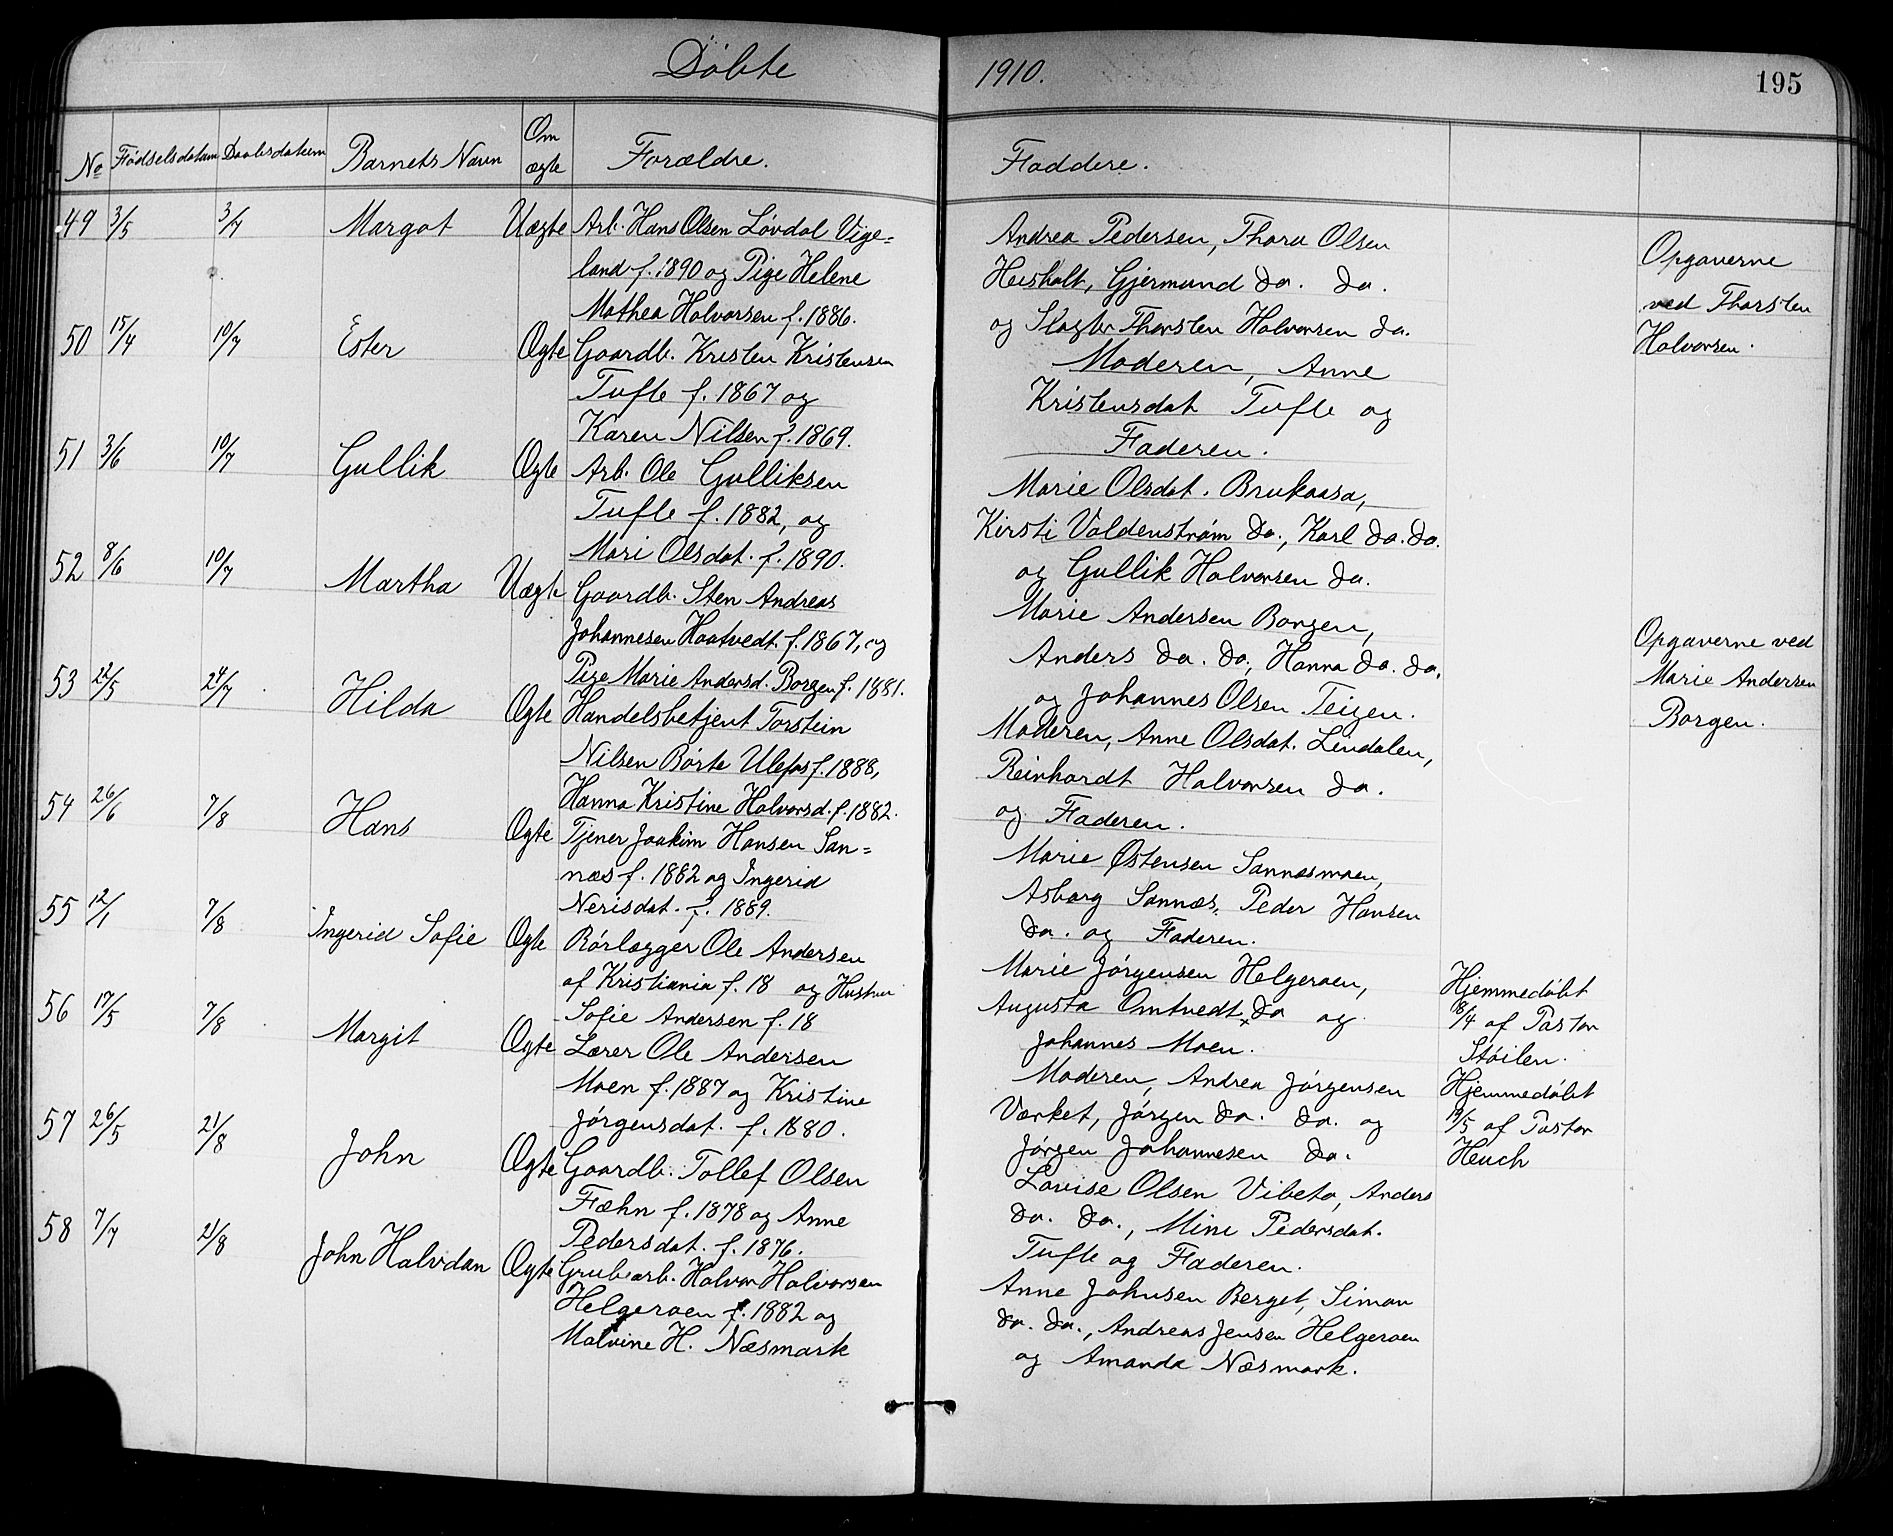 Døbte 1910. 195
No Fødselsdatum Daabsdatum Barnets Navn Om ægte Forældre. Faddere.
49 3/5 3/7 Margot Uægte Arb. Hans Olsen Løvdal Vige=
land f. 1890 og Pige Helene
Mathea Halvorsen f. 1886.
Andrea Pedersen, Thora Olsen
Heisholt, Gjermund do. do.
og Slagter Thorsten Halvorsen do.
Opgaverne
ved Thorsten
Halvorsen.
50 15/4 10/7 Ester Ægte Gaardb. Kristen Kristensen
Tufte f. 1867 og
Karen Nilsen f. 1869.
Moderen, Anne
Kristensdat Tufte og
Faderen.
51 3/6 10/7 Gullik Ægte Arb. Ole Gulliksen
Tufte f. 1882, og
Mari Olsdat. f. 1890.
Marie Olsdat. Brukaasa,
Kirsti Valdenstrøm do., Karl do. do.
og Gullik Halvorsen do.
52 8/6 10/7 Martha Uægte Gaardb. Sten Andreas
Johannesen Haatvedt f. 1867, og
Pige Marie Andersd. Borgen f. 1881.
Marie Andersen Borgen,
Anders do. do., Hanna do. do.
og Johannes Olsen Teigen.
Opgaverne ved
Marie Andersen
Borgen.
53 22/5 24/7 Hilda Ægte Handelsbetjent Torstein
Nilsen Børte Ulefos f. 1888,
Hanna Kristine Halvorsd. f. 1882.
Moderen, Anne Olsdat. Lendalen,
Reinhardt Halvorsen do.
og Faderen.
54 26/6 7/8 Hans Ægte Tjener Joakim Hansen San=
næs f. 1882 og Ingerid
Nerisdat. f. 1889.
Marie Østensen Sannæsmoen,
Asborg Sannæs, Peder Hansen
do. og Faderen.
55 12/1 7/8 Ingerid Sofie Ægte Rørlægger Ole Andersen
af Kristiania f. 18 og Hustru
Sofie Andersen f. 18
Marie Jørgensen Helgeroen,
Augusta Omtvedt do og
Johannes Moen.
Hjemmedøbt
18/4 af Pastor
Støilen.
56 17/5 7/8 Margit Ægte Lærer Ole Andersen
Moen f. 1887 og Kristine
Jørgensdat. f. 1880.
Moderen, Andrea Jørgensen
Værket, Jørgen do. do. og
Jørgen Johannesen do.
Hjemmedøbt
19/5 af Pastor
Heuch
57 26/5 21/8 John Ægte Gaardb. Tollef Olsen
Fæhn f. 1878 og Anne
Pedersdat. f. 1876.
Lovise Olsen Vibeto, Anders
do. do., Mine Pedersdat.
Tufte og Faderen.
58 7/7 21/8 John Halvdan Ægte Grubearb. Halvor Halvorsen
Helgeroen f. 1882 og
Malvine H. Næsmark
Anne Johnsen Berget, Simon
do. do., Andreas Jensen Helgeroen
og Amanda Næsmark.